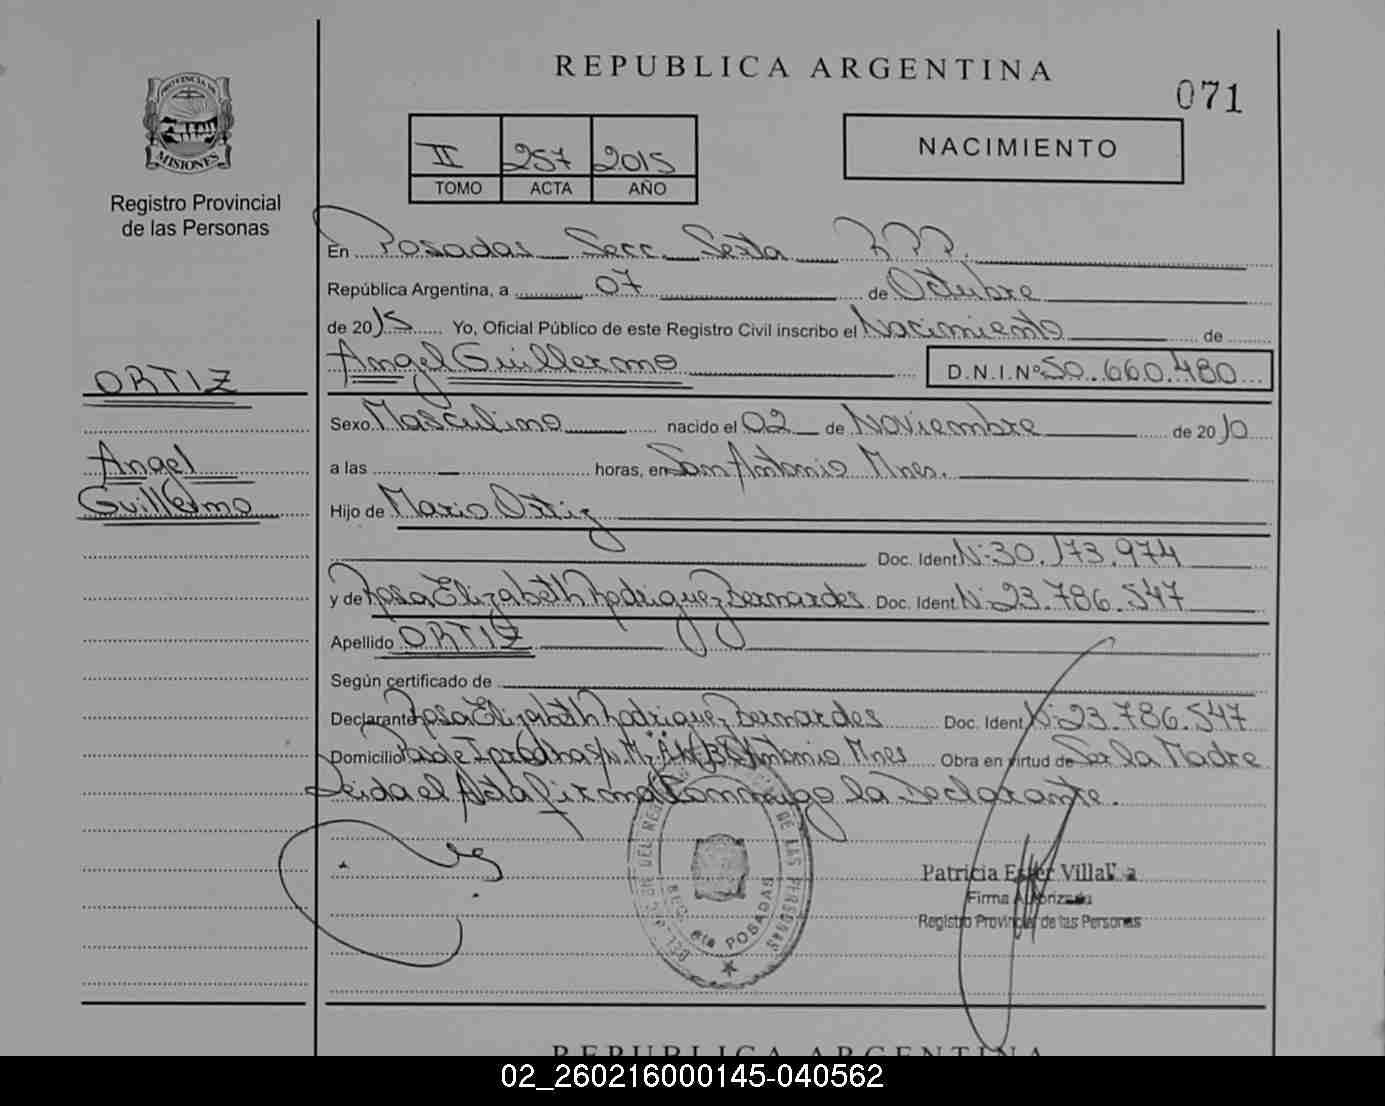 PROVINCIA DE
MISIONES
Registro Provincial
de las Personas
ORTIZ
Angel
Guillermo
REPUBLICA ARGENTINA
071
NACIMIENTO
II 257 2015
TOMO ACTA AÑO
En Posadas Secc. Sexta R.P.P.
República Argentina, a 07 de Octubre
de 2015 Yo, Oficial Público de este Registro Civil inscribo el Nacimiento de
Angel Guillermo D.N.I.Nº 50.660.480
Sexo Masculino nacido el 02 de Noviembre de 2010
a las — horas, en San Antonio Mnes.
Hijo de Mario Ortiz
Doc. Ident. Nº 30.173.974
y de Rosa Elizabeth Rodriguez Bernardes Doc. Ident. Nº 23.786.547
Apellido ORTIZ
Según certificado de
Declarante Rosa Elizabeth Rodriguez Bernardes Doc. Ident. Nº 23.786.547
Domicilio S. Antonio Mnes Obra en virtud de Ser la Madre
Leida el Acta firma Conmigo la Declarante.
DE LAS PERSONAS
POSADAS
Patricia Ester
Firma Autorizada
Registro Provincial de las Personas
REPUBLICA ARGENTINA
02_260216000145-040562